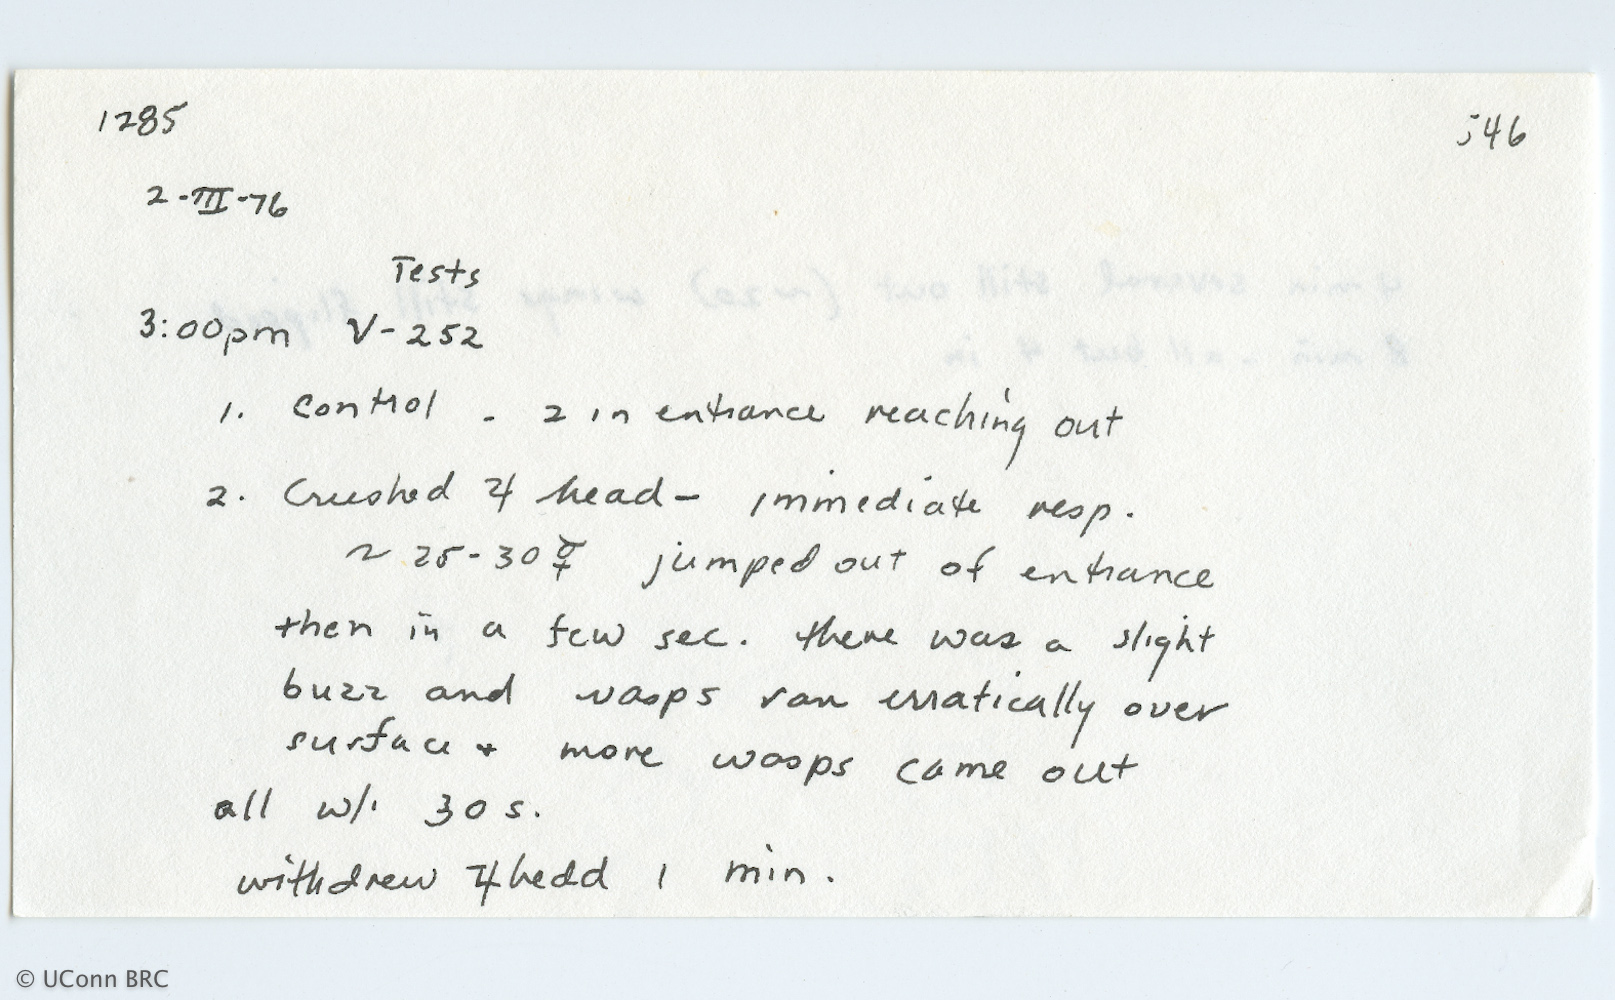 1285
546
2-III-76
Tests
3:00pm V-252
1. Control - 2 in entrance reaching out
2. Crushed 4 head - immediate resp.
~ 25-30 ☿ jumped out of entrance
then in a few sec. there was a slight
buzz and wasps ran erratically over
surface + more wasps came out
all w/i 30 s.
withdrew 4 head 1 min.
4 min several still out (~20) wings still flipped
8 min - all but 4 in
© UConn BRC